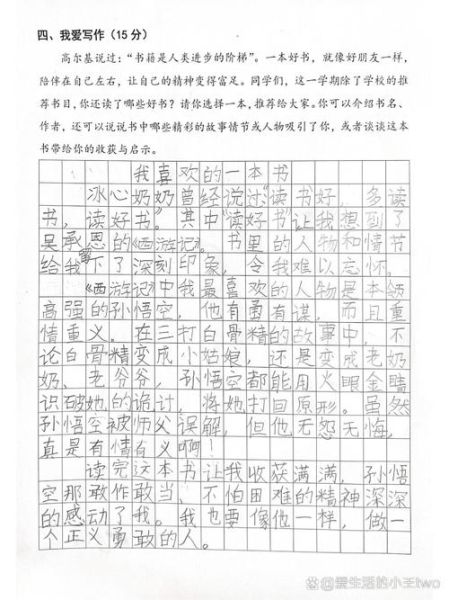 四、我爱写作（15 分）
高尔基说过：“书籍是人类进步的阶梯”。一本好书，就像好朋友一样，
陪伴在自己左右，让自己的精神变得富足。同学们，这一学期除了学校的推
荐书目，你还读了哪些好书？请你选择一本，推荐给大家。你可以介绍书名、
作者，还可以说说书中哪些精彩的故事情节或人物吸引了你，或者谈谈这本
书带给你的收获与启示。
我喜欢的一本书
冰心奶奶曾经说过“读书好，多读
书，读好书。”其中“读好书”让我想到了
吴承恩的《西游记》。书里的人物和情节
给我留下了深刻印象，令我难以忘怀。
《西游记》中我最喜欢的人物是本领
高强的孙悟空，他有勇有谋，而且重
情重义。在三打白骨精的故事中，不
论白骨精变成小姑娘，还是变成老奶
奶、老爷爷，孙悟空都能用火眼金睛
识破她的诡计，将她打回原形。虽然
孙悟空被师父误解，但他无怨无悔，
真是有情有义啊！
读完这本书让我收获满满，孙悟
空那敢作敢当、不怕困难的精神深深
的感动了我。我也要像他一样，做一
个正义勇敢的人。
@爱生活的小王two